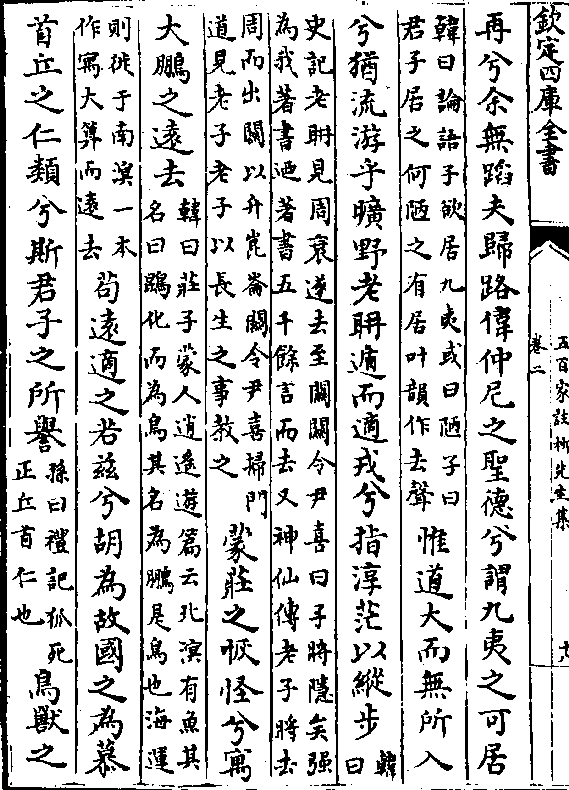 欽定四庫全書
五百家註柳先生集
卷二
十八
再兮余無蹈夫歸路偉仲尼之聖德兮謂九夷之可居
韓曰論語子欲居九夷或曰陋子曰
君子居之何陋之有居叶韻作去聲
惟道大而無所入
兮猶流游乎曠野老聃遁而適戎兮指淳茫以縱步
韓曰
史記老聃見周衰遂去至關關令尹喜曰子將隱矣强
為我著書迺著書五千餘言而去又神仙傳老子將去
周而出關以升崑崙關令尹喜掃門
道見老子老子以長生之事教之
蒙莊之恢怪兮寓
大鵬之遠去
韓曰莊子蒙人逍遙遊篇云北溟有魚其
名曰鵾化而為鳥其名為鵬是鳥也海運
則徙于南溟一本
作寓大算而遠去
苟遠適之若兹兮胡為故國之為慕
首丘之仁類兮斯君子之所譽
孫曰禮記狐死
正丘首仁也
鳥獸之